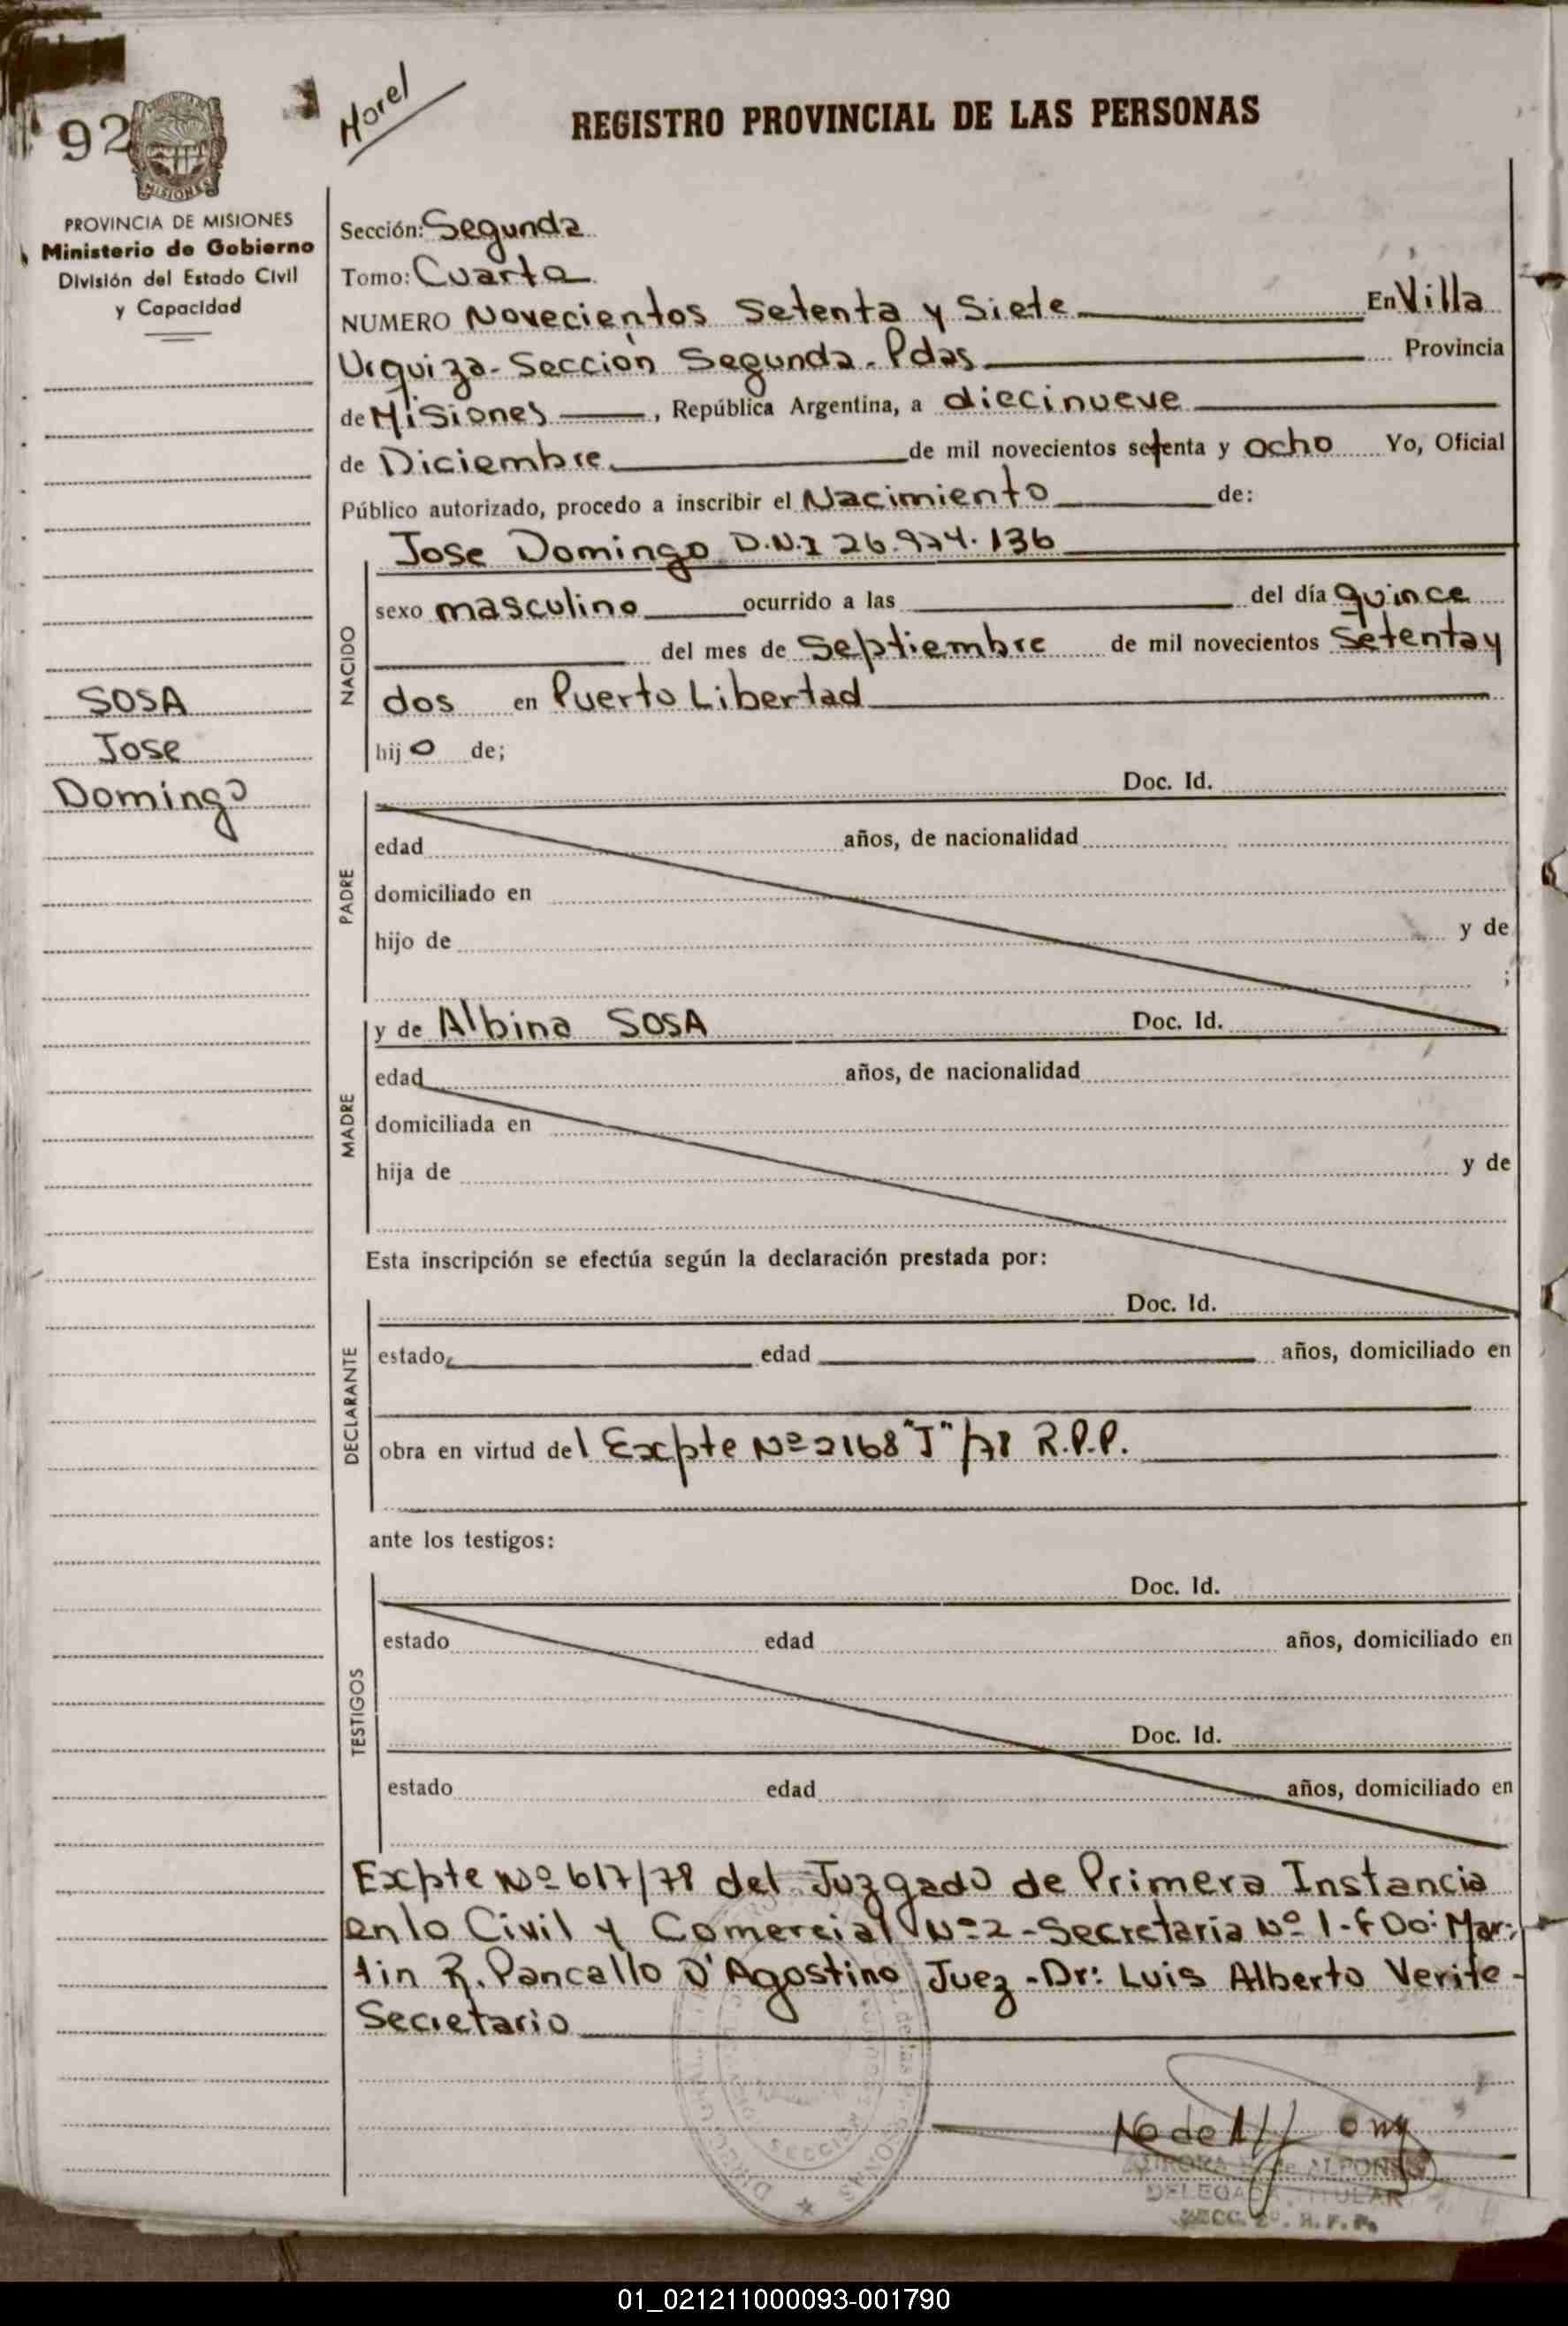 92
Morel
REGISTRO PROVINCIAL DE LAS PERSONAS
MISIONES
PROVINCIA DE MISIONES
Ministerio de Gobierno
División del Estado Civil
y Capacidad
Sección: Segunda
Tomo: Cuarto
NUMERO Novecientos Setenta y Siete En Villa
Urquiza - Sección Segunda - Pdas Provincia
de Misiones, República Argentina, a diecinueve
de Diciembre de mil novecientos setenta y ocho Yo, Oficial
Público autorizado, procedo a inscribir el Nacimiento de:
Jose Domingo D.N.I 26.974.136
NACIDO
sexo masculino ocurrido a las del día quince
del mes de Septiembre de mil novecientos Setenta y
dos en Puerto Libertad
hijo de;
SOSA
Jose
Domingo
PADRE
Doc. Id.
edad años, de nacionalidad
domiciliado en
hijo de y de
;
MADRE
y de Albina SOSA Doc. Id.
edad años, de nacionalidad
domiciliada en
hija de y de
Esta inscripción se efectúa según la declaración prestada por:
DECLARANTE
Doc. Id.
estado edad años, domiciliado en
obra en virtud del Expte Nº 2168 "J" /78 R.P.P.
ante los testigos:
TESTIGOS
Doc. Id.
estado edad años, domiciliado en
Doc. Id.
estado edad años, domiciliado en
Expte Nº 617/78 del Juzgado de Primera Instancia
en lo Civil y Comercial Nº 2 - Secretaria Nº 1 - FDO: Mar-
tin R. Pancallo D'Agostino Juez - Dr: Luis Alberto Verite -
Secretario
SECCION
ALFONSO
DELEGADA TITULAR
SECC. 2º. R. P. P.
01_021211000093-001790